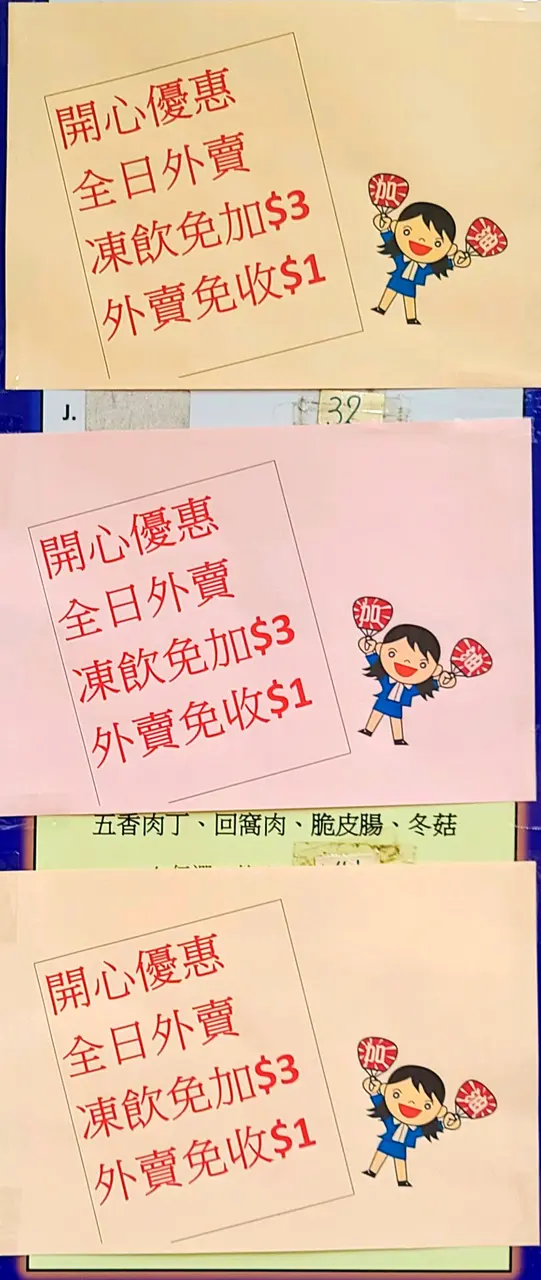 開心優惠
全日外賣
凍飲免加$3
外賣免收$1
加油
J.
32
開心優惠
全日外賣
凍飲免加$3
外賣免收$1
加油
五香肉丁、回窩肉、脆皮腸、冬菇
開心優惠
全日外賣
凍飲免加$3
外賣免收$1
加油